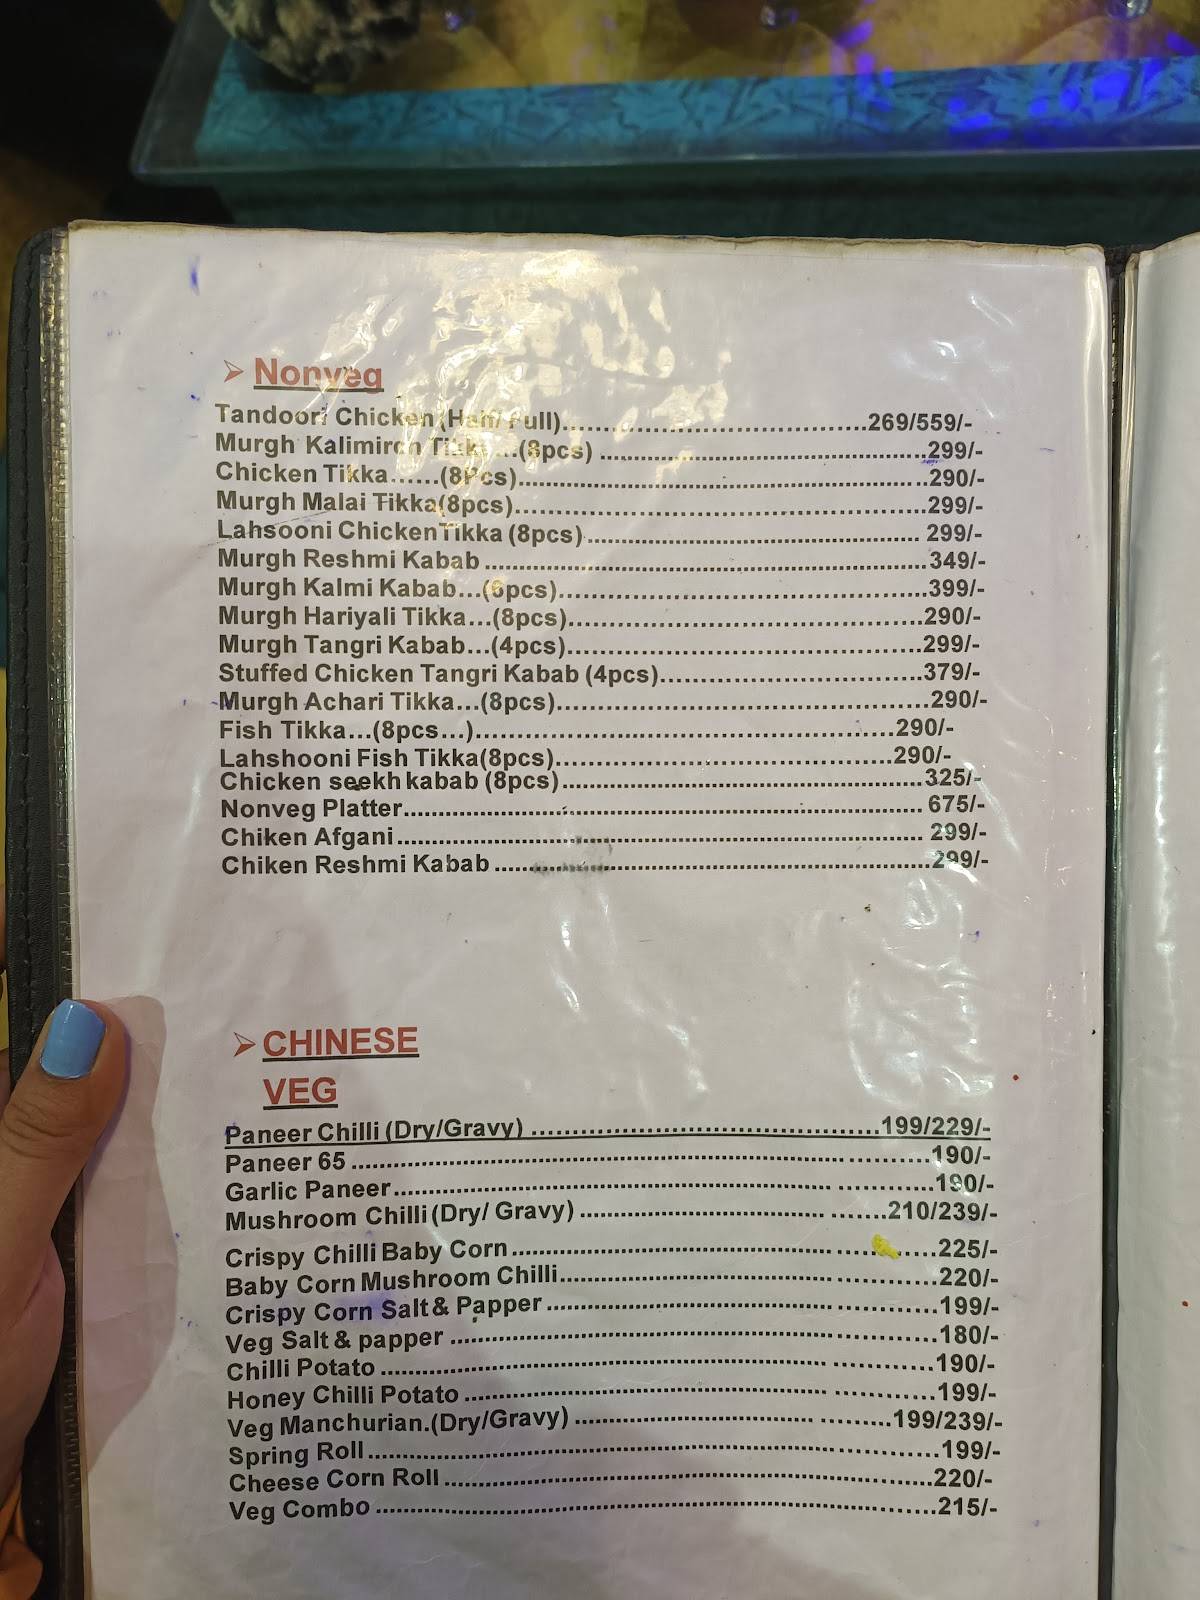 ➢ Nonveg
Tandoori Chicken(Half/ Full)..........................................269/559/-
Murgh Kalimirch Tikka ...(8pcs) ..........................................299/-
Chicken Tikka......(8Pcs)..........................................290/-
Murgh Malai Tikka(8pcs)..........................................299/-
Lahsooni ChickenTikka (8pcs).......................................... 299/-
Murgh Reshmi Kabab ..........................................349/-
Murgh Kalmi Kabab...(6pcs)..........................................399/-
Murgh Hariyali Tikka...(8pcs)..........................................290/-
Murgh Tangri Kabab...(4pcs)..........................................299/-
Stuffed Chicken Tangri Kabab (4pcs)..........................................379/-
Murgh Achari Tikka...(8pcs)..........................................290/-
Fish Tikka...(8pcs...)..........................................290/-
Lahshooni Fish Tikka(8pcs)..........................................290/-
Chicken seekh kabab (8pcs)..........................................325/-
Nonveg Platter.......................................... 675/-
Chiken Afgani.......................................... 299/-
Chiken Reshmi Kabab ..........................................299/-
➢ CHINESE
VEG
Paneer Chilli (Dry/Gravy) ..........................................199/229/-
Paneer 65 ..........................................190/-
Garlic Paneer..........................................190/-
Mushroom Chilli (Dry/ Gravy) ..........................................210/239/-
Crispy Chilli Baby Corn ..........................................225/-
Baby Corn Mushroom Chilli..........................................220/-
Crispy Corn Salt & Papper ..........................................199/-
Veg Salt & papper ..........................................180/-
Chilli Potato ..........................................190/-
Honey Chilli Potato ..........................................199/-
Veg Manchurian.(Dry/Gravy) ..........................................199/239/-
Spring Roll ..........................................199/-
Cheese Corn Roll ..........................................220/-
Veg Combo ..........................................215/-